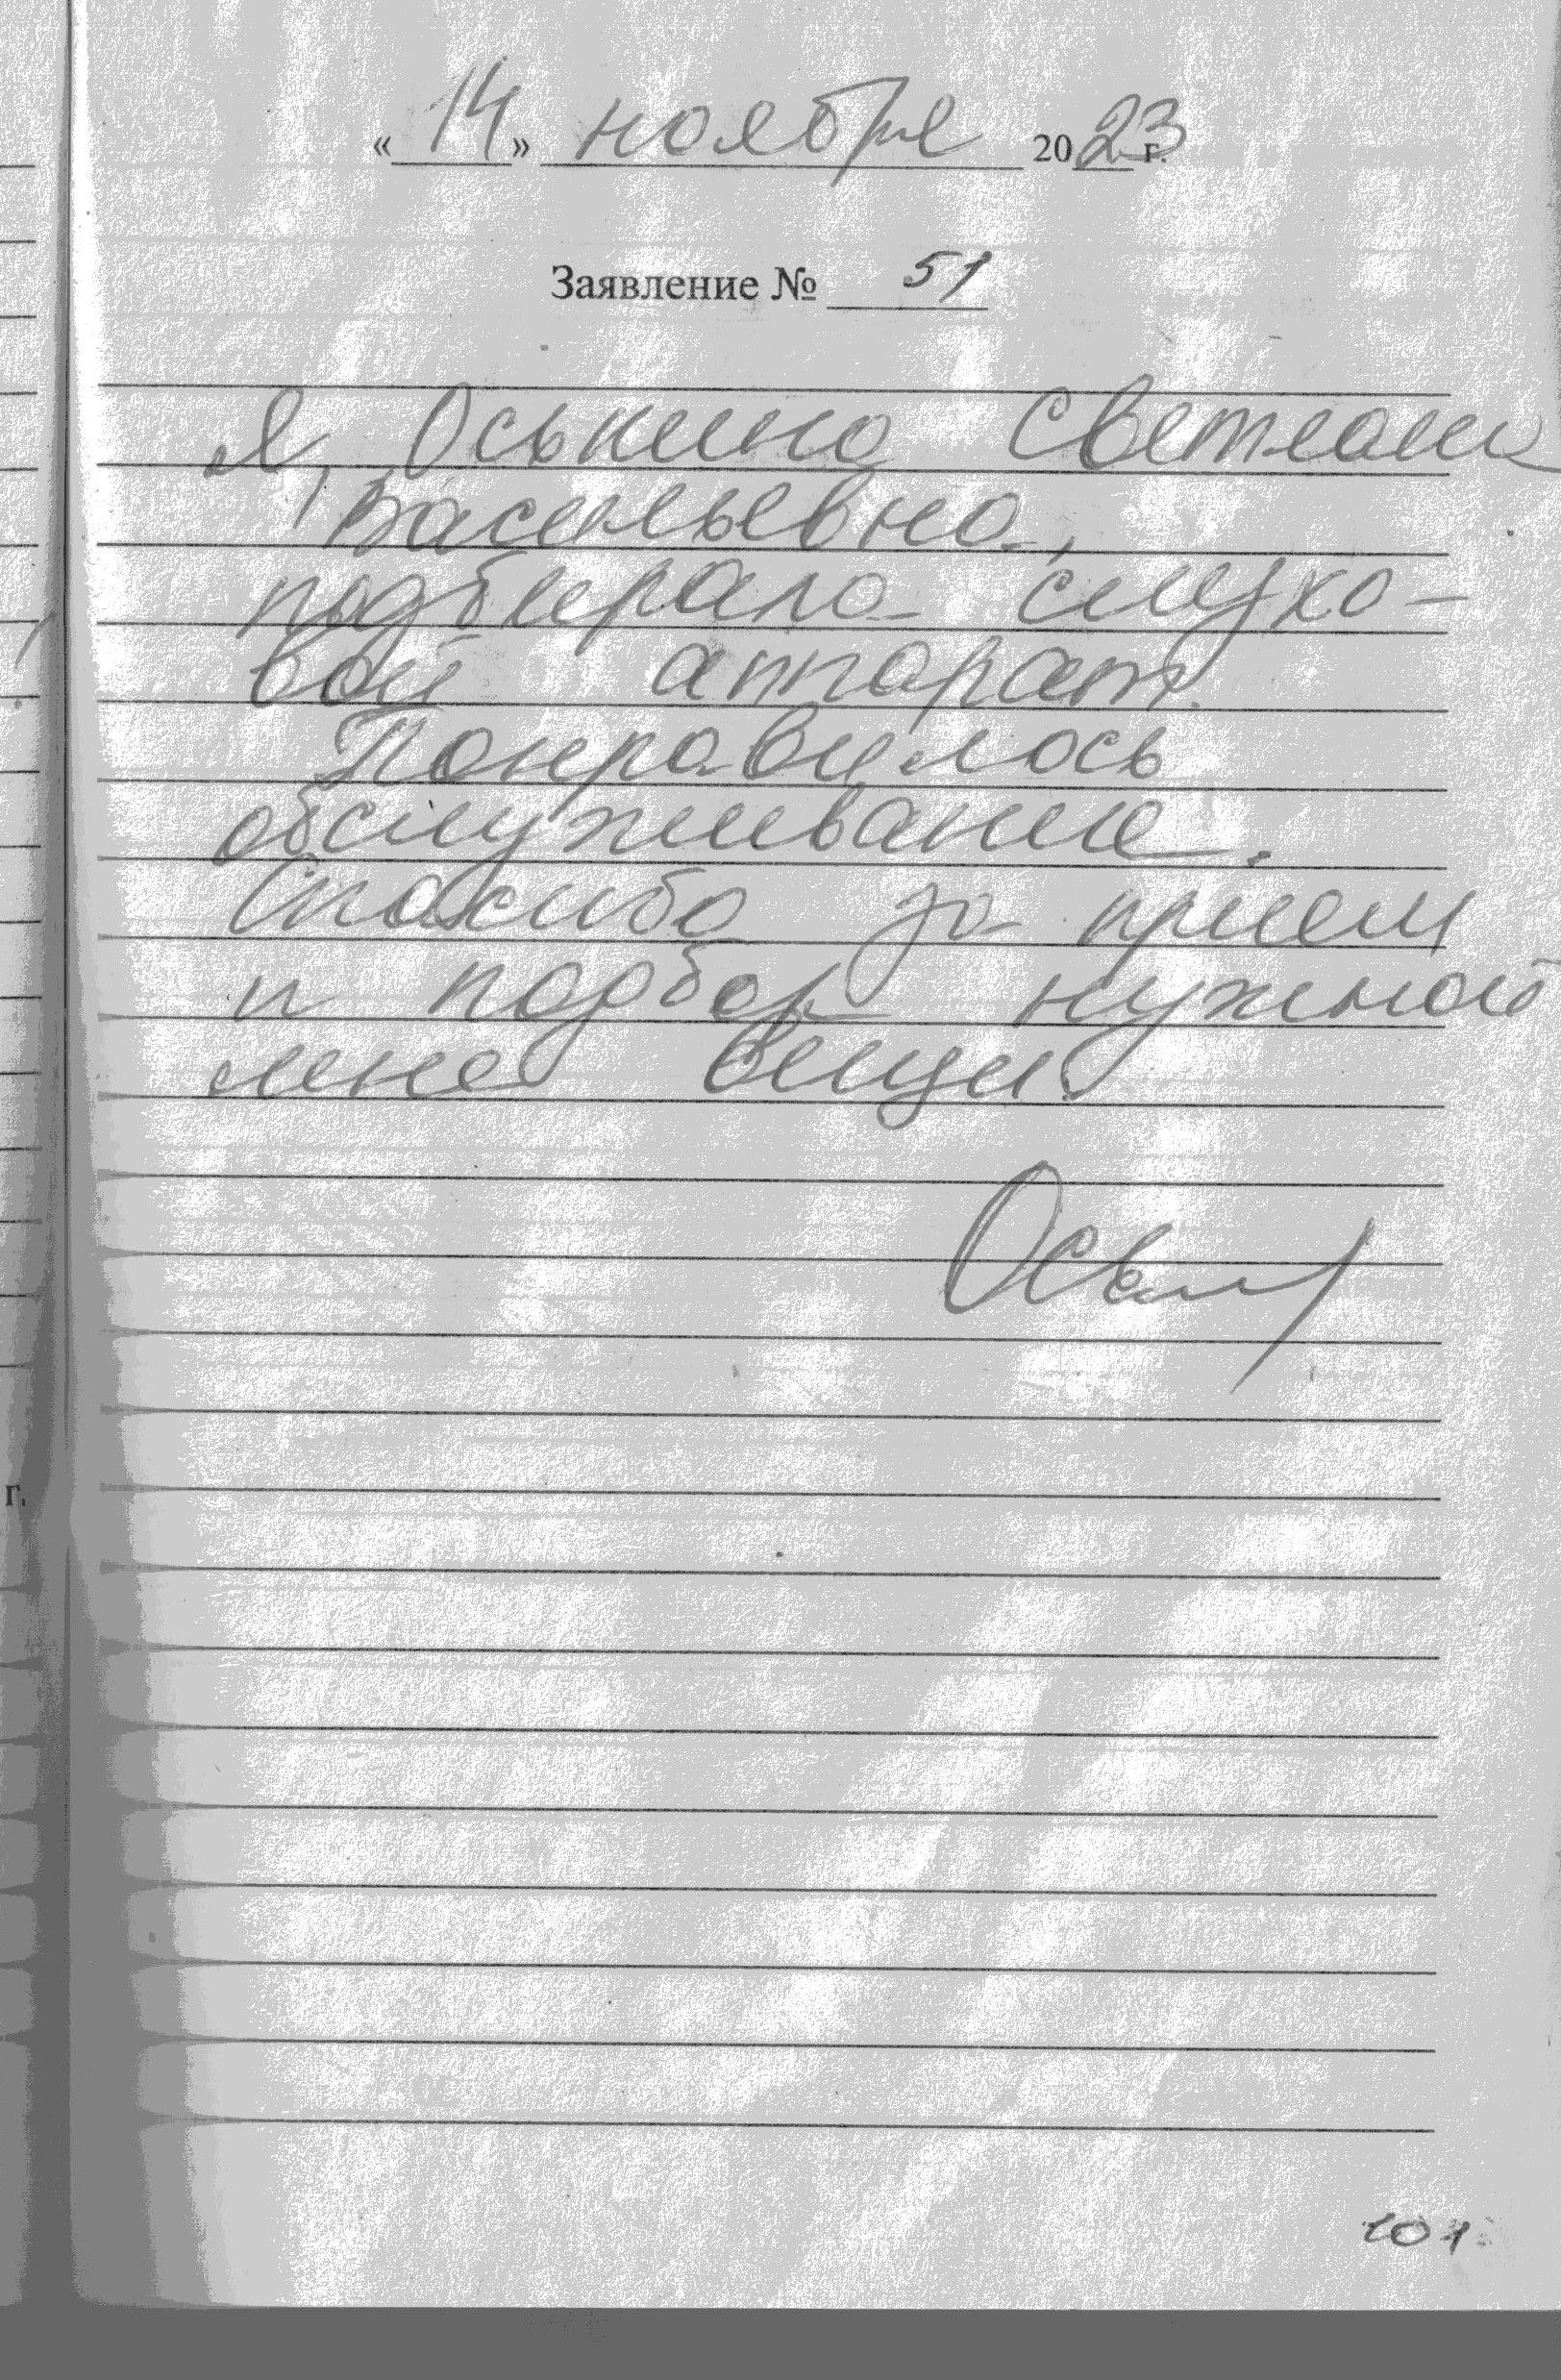 «14» ноября 2023 г.
Заявление № 51
Я, Оськина Светлана
Васильевна,
подбирала слухо-
вой аппарат.
Понравилось
обслуживание.
Спасибо за прием
и подбор нужной
мне вещи.
г.
101